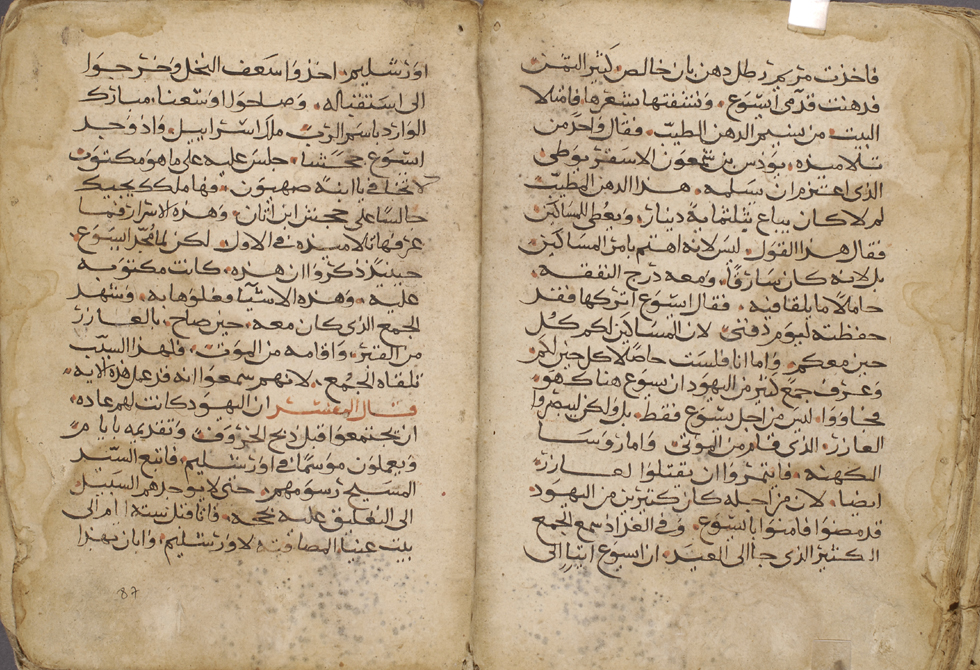 فاخذت مريم رطل دهن بان خالص كثير الثمن
فدهنت قدمي ايسوع . ونشفتها بشعرها فامتلا
البيت من نسيم الدهن الطيب . فقال واحد من
تلاميذه . يودس بن شمعون الاسخريوطي
الذي اعتزم ان يسلمه . هذا الدهن المطيب
لم لا كان يباع بثلثماية دينار . ويعطى للمساكين
فقال هذا القول . ليس لانه اهتم بامر المساكين
بل لانه كان سارقا . ومعه درج النفقه .
حاملا ما يلقا فيه . فقال ايسوع اتركها فقد
حفظته ليوم دفني . لان المساكين لكم كل
حين معكم . واما انا فلست حاصلا كل حين لكم
وعرف جمع كثير من اليهود ان يسوع هناك هو .
فجاووا . ليس من اجل يسوع فقط . بل ولكن ليبصروا
العازر . الذي قام من الموتى . وامازوسا
الكهنه . فايتمروا ان يقتلوا لعازر .
ايضا . لان من اجله كان كثيرين من اليهود
قد مضوا فامنوا بايسوع . وفي الغد اذ سمع الجمع
الكثير الذي جا الى العيد . ان ايسوع اتيا الى
اورشليم . اخذوا سعف النخل وخرجوا
الى استقباله . وصاحوا اوشعنا . مبارك
الوارد باسم الرب ملك اسراييل . واذ وجد
ايسوع جحشا . جلس عليه على ما هو مكتوب
لا تخافي يا ابنة صهيون . فها ملكك يجيك
جالسا على جحش ابن اتان . وهذه الاسرار فما
عرفها تلاميذه في الاول . لكن لما مجد ايسوع
حينيذ ذكروا ان هذه . كانت مكتوبه
عليه . وهذه الاشيا فعلوها به . وشهد
الجمع الذي كان معه . حين صاح . بالعازر
من القبر . واقامه من الموت . فلهذا السبب
تلقاه الجمع . لانهم سمعوا انه قد عمل هذه الايه .
قال المفسر ان اليهود كانت لهم عاده .
ان يجتمعوا قبل ذبح الخروف . وتقديمه بايام
ويعملون موسما في اورشليم . فاتبع السيد
المسيح رسومهم . حتى لا يوجدهم السبيل
الى التعليق عليه بحجه . فاتا قبل ستة ايام الى
بيت عنيا المصاقبه لاورشليم . وابان بهذا
87